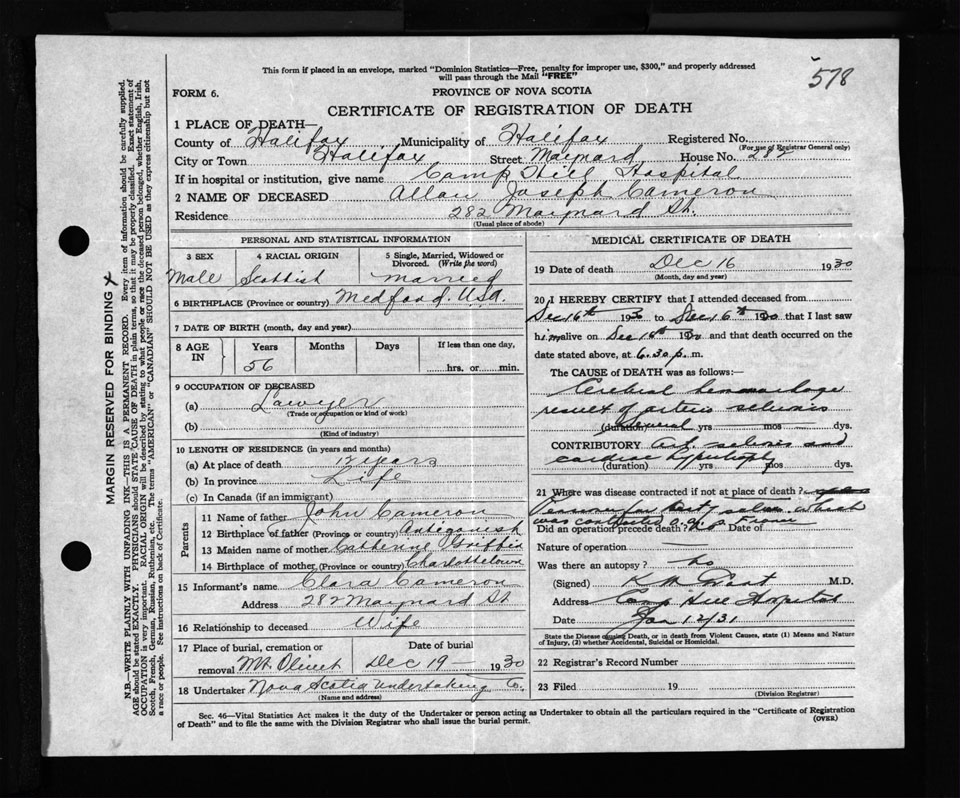 578
This form if placed in an envelope, marked "Dominion Statistics—Free, penalty for improper use, $300," and properly addressed
will pass through the Mail "FREE"
FORM 6.
PROVINCE OF NOVA SCOTIA
CERTIFICATE OF REGISTRATION OF DEATH
1 PLACE OF DEATH—
County of Halifax Municipality of Halifax Registered No.
(For use of Registrar General only)
City or Town Halifax Street Maynard House No. 282
If in hospital or institution, give name Camp Hill Hospital
2 NAME OF DECEASED Allan Joseph Cameron
Residence 282 Maynard St.
(Usual place of abode)
PERSONAL AND STATISTICAL INFORMATION
3 SEX 4 RACIAL ORIGIN 5 Single, Married, Widowed or
Divorced. (Write the word)
Male Scottish Married
6 BIRTHPLACE (Province or country) Medford. U.S.A.
7 DATE OF BIRTH (month, day and year)
8 AGE IN Years Months Days If less than one day,
56 hrs. or min.
9 OCCUPATION OF DECEASED
(a) Lawyer
(Trade or occupation or kind of work)
(b)
(Kind of industry)
10 LENGTH OF RESIDENCE (in years and months)
(a) At place of death 12 years
(b) In province Life
(c) In Canada (if an immigrant)
Parents
11 Name of father John Cameron
12 Birthplace of father (Province or country) Antigonish
13 Maiden name of mother Catherine Griffin
14 Birthplace of mother (Province or country) Charlottetown
15 Informant's name Clara Cameron
Address 282 Maynard St
16 Relationship to deceased Wife
17 Place of burial, cremation or Date of burial
removal Mt. Olivet Dec 19 — 1930
18 Undertaker Nova Scotia Undertaking Co.
(Name and address)
MEDICAL CERTIFICATE OF DEATH
19 Date of death Dec 16 1930
(Month, day and year)
20 I HEREBY CERTIFY that I attended deceased from
Dec 16th 1930 to Dec 16th 1930 that I last saw
him alive on Dec 16th 1930 and that death occurred on
the date stated above, at 6.30 p. m.
The CAUSE of DEATH was as follows:
Cerebral hemorrhage
result of arterio sclerosis
(duration) several yrs mos dys.
CONTRIBUTORY Art. sclerosis and
cardiac hypertrophy
(duration) yrs mos dys.
21 Where was disease contracted if not at place of death?
was contracted France
Did an operation precede death? Date of
Nature of operation —
Was there an autopsy? No
(Signed) K M Grant M.D.
Address Camp Hill Hospital
Date Jan 12/31
State the Disease causing Death, or in death from Violent Causes, state (1) Means and Nature
of Injury, (2) whether Accidental, Suicidal or Homicidal.
22 Registrar's Record Number
23 Filed 19
(Division Registrar)
Sec. 46—Vital Statistics Act makes it the duty of the Undertaker or person acting as Undertaker to obtain all the particulars required in the "Certificate of Registration
of Death" and to file the same with the Division Registrar who shall issue the burial permit.
(OVER)
MARGIN RESERVED FOR BINDING X
N.B.—WRITE PLAINLY WITH UNFADING INK—THIS IS A PERMANENT RECORD. Every item of information should be carefully supplied.
AGE should be stated EXACTLY. PHYSICIANS should STATE CAUSE OF DEATH in plain terms, so that it may be properly classified. Exact statement of
OCCUPATION is very important. RACIAL ORIGIN will be described by stating to what people or race the deceased person belonged, whether English, Irish,
Scotch, French, German, Russian, Ruthenian, etc. The terms "AMERICAN" or "CANADIAN" SHOULD NOT BE USED as they express citizenship but not
a race or people. See instructions on back of Certificate.